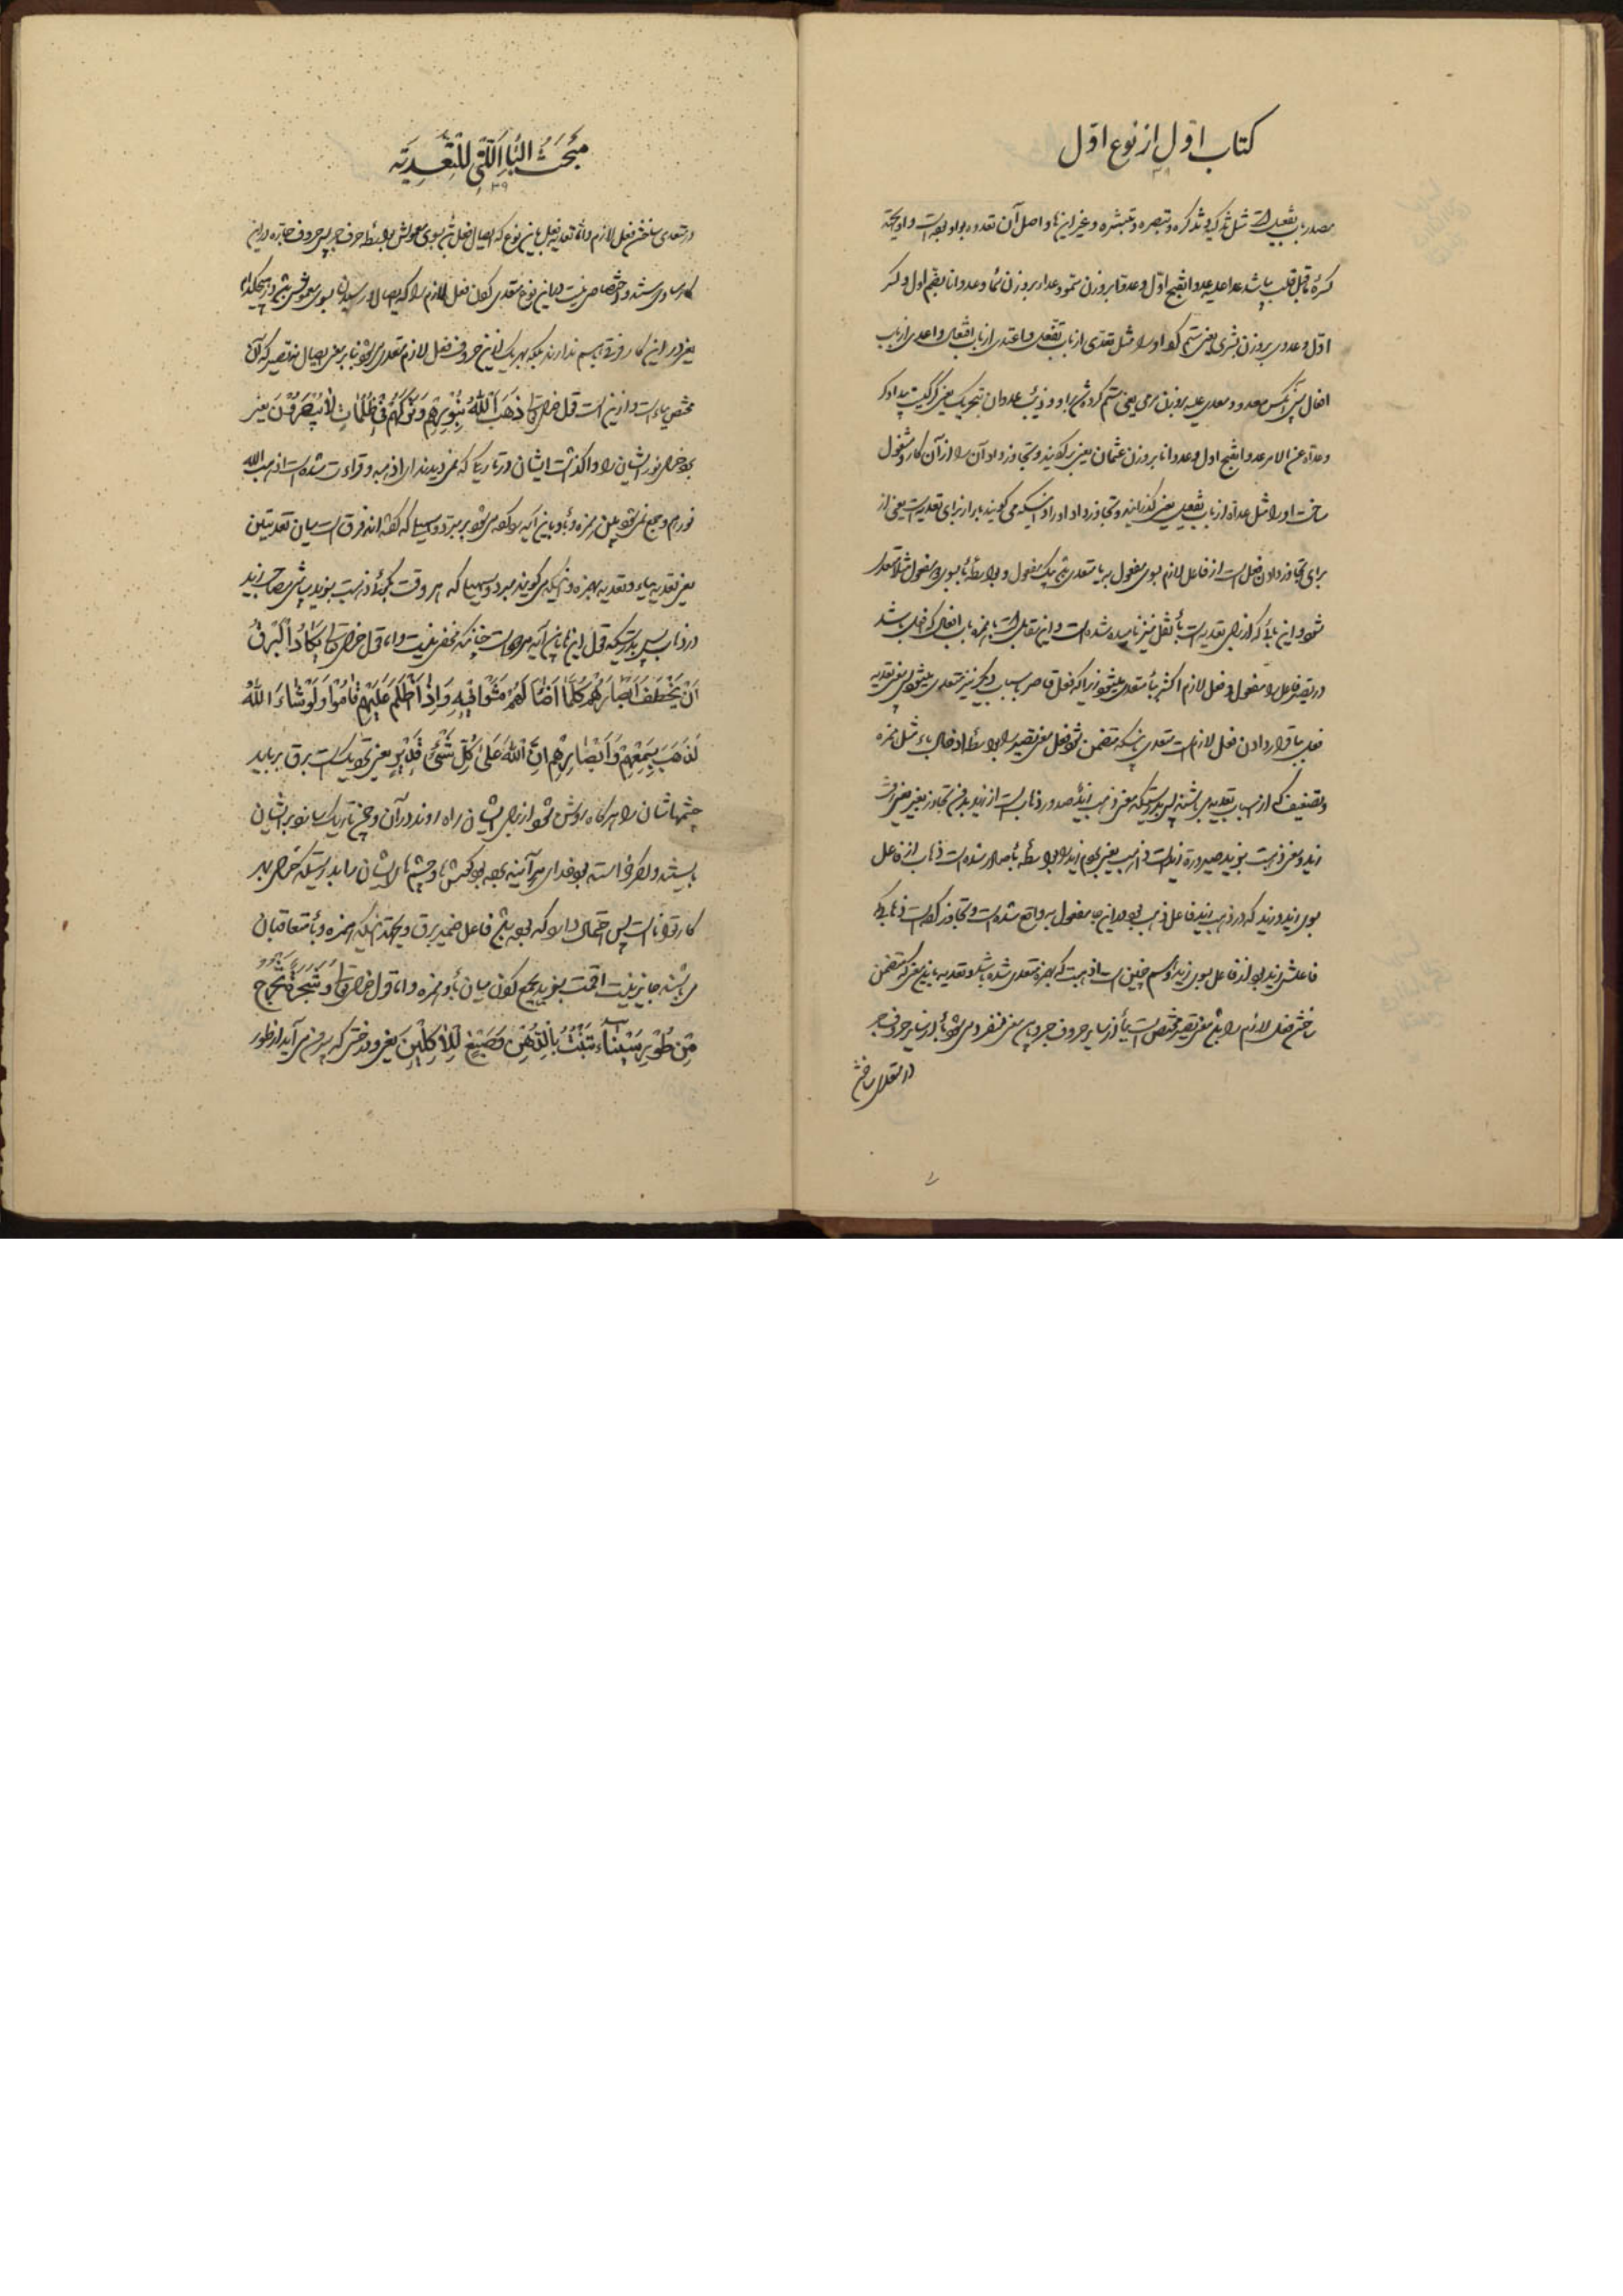 كتاب اول از نوع اول
مصدر باب تفعیل است مثل تذکیر و تذکره و تبصره و غیر این‌ها و اصل آن تعدوه بواو بوده است و او بجهة
کسرهٔ ماقبل قلب بیا شد عدا علیه عدوا بفتح اول و عدوا بروزن سمو و عداء بروزن سماء و عدوانا بضم اول و کسر
اول و عدوی بروزن بشری یعنی ستم کرد او را مثل تعدی از باب تفعل و اعتدی از باب افتعال و اعدی از باب
افعال پس آنکس معدو و معدی علیه بروزن مرمی یعنی ستم کرده شد براو و ذئب عدوان بتحریک یعنی گرگیست
وعداه عن الامر عدوا بفتح اول و عدوانا بروزن عثمان یعنی برگردانید و تجاوز داد آن را از آن کار و مشغول
ساخت او را مثل عداه از باب تفعیل یعنی گذرانید و تجاوز داد او را و اینکه می گویند با از برای تعدیه است یعنی از
برای تجاوز دادن فعل است از فاعل لازم بسوی مفعول به یا متعدی بیک مفعول و بواسطهٔ با بسوی دو مفعول
شود و این بائی که از برای تعدیه است باء نقل نیز نامیده شده است و این مقابل است با همزه باب افعال که داخل باشد
در تصییر فاعل را مفعول و فعل لازم اکثر بباء متعدی میشود زیرا که فعل قاصر باسباب دیگر نیز متعدی میشود پس معنی تعدیه
فعل بباء قرار دادن فعل لازم است متعدی باینکه متضمن شود فعل معنی تصییر را بواسطهٔ ادخال باء مثل همزه
و تضعیف که از اسباب تعدیه می باشند پس بدرستیکه معنی ذهب زید صدور ذهاب است از زید بدون تجاوز بغیر یعنی رفت
زید و معنی ذهبت بزید صیرورة زید است ذاهب یعنی بردم زید را بواسطهٔ با صادر شده است ذهاب از فاعل
بسوی زید و زید که در ذهب زید فاعل ذهب بود در این جا مفعول به واقع شده است و تجاوز کرده است ذهابی که
فاعلش زید بود از فاعل بسوی زید و هم چنین است اذهبت که بهمزه متعدی شده باشد و تعدیه باین معنی که متضمن
ساختن فعل لازم را باشد معنی تصییر مختص است بباء از سایر حروف جر و باین معنی منفرد می شود باء از سایر حروف جر
در متعدی ساختن
مبحث الباء التی للتعدیة
۳۹
در متعدی ساختن فعل لازم و اما تعدیه فعل باین نوع که ایصال فعل باشد بسوی معمولش بواسطهٔ حرف جر پس حروف جاره در این
کار مساوی هستند و اختصاصی نیست در این نوع متعدی کردن فعل لازم را که ایصال و رسیدن بسوی معمولش باشد
یعنی در این کار فرقی باهم ندارند بلکه بهر یک از این حروف فعل لازم متعدی می شود بنابر معنی ایصال نه تصییر که آن
مختص بباء است و از این است قول خدای تعالی ذَهَبَ اللّٰهُ بِنُورِهِمْ وَتَرَكَهُمْ فِي ظُلُمَاتٍ لَا يُبْصِرُونَ یعنی
برد خدا نور ایشان را و واگذاشت ایشان در تاریکی که نمی دیدند راه را و قراءت شده است اذهب الله
نورهم و جمع نمی شود میان همزه و باء و باین آیه رد کرده می شود بر مبرد و سهیلی که گفته اند فرق است میان تعدیتین
یعنی تعدیه بباء و تعدیه بهمزه و اینکه می گویند مبرد و سهیلی که هر وقت بگوئی ذهبت بزید باشی مصاحب زید
در ذهاب پس بدرستیکه قول این‌ها باین آیه مردود است چنانکه مخفی نیست و اما قول خدای تعالی يَكَادُ الْبَرْقُ
أَنْ يَخْطَفُ أَبْصَارَهُمْ كُلَّمَا أَضَاءَ لَهُمْ مَشَوْا فِيهِ وَإِذَا أَظْلَمَ عَلَيْهِمْ قَامُوا وَلَوْ شَاءَ اللّٰهُ
لَذَهَبَ بِسَمْعِهِمْ وَأَبْصَارِهِمْ إِنَّ اللّٰهَ عَلَىٰ كُلِّ شَيْءٍ قَدِيرٌ یعنی نزدیک است برق برباید
چشمهاشان را هر گاه روشن شود از برای ایشان راه روند در آن و چون تاریک شود بر ایشان
بایستند و اگر خواسته بود خدا هر آینه برده بود گوشها و چشم های ایشان را بدرستیکه خدا بر هر
کار توانا است پس احتمال دارد که بوده باشد فاعل ضمیر برق و بجهة اینکه همزه و باء متعاقبان
می باشند جایز نیست اقمت بزید بجمع کردن میان باء و همزه و اما قول خدای تعالی وَشَجَرَةً تَخْرُجُ
مِنْ طُورِ سَيْنَاءَ تَنْبُتُ بِالدُّهْنِ وَصِبْغٍ لِلْآكِلِينَ یعنی و درختی که بیرون می آید از طور